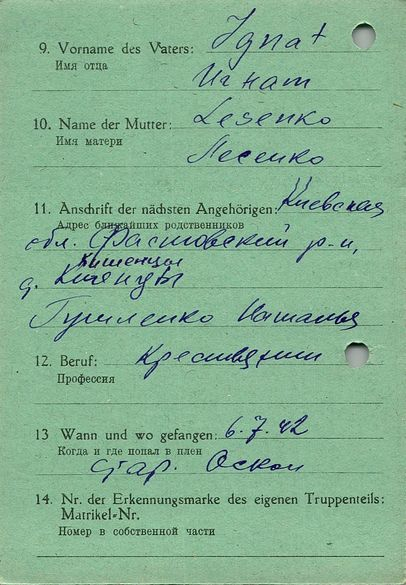 9. Vorname des Vaters: Ignat
Имя отца
Игнат
10. Name der Mutter: Lesenko
Имя матери
Лесенко
11. Anschrift der nächsten Angehörigen: Киевская
Адрес ближайших родственников
обл. Фастовский р-н,
Кишенцы
д.
Наталья
12. Beruf: Крестьянин
Профессия
13 Wann und wo gefangen: 6.7.42
Когда и где попал в плен
стар. Оскол
14. Nr. der Erkennungsmarke des eigenen Truppenteils:
Matrikel-Nr.
Номер в собственной части